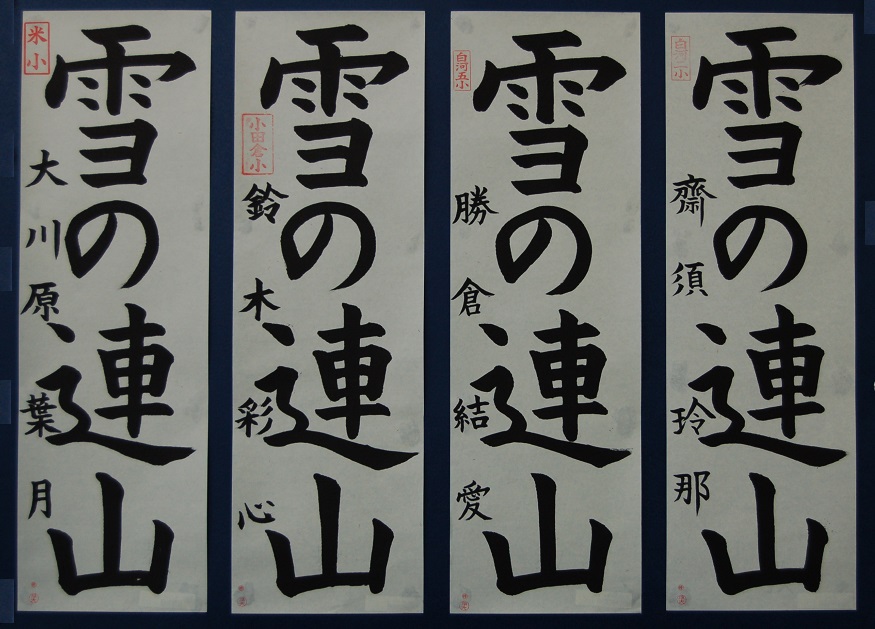 雪の連山
米小
大川原葉月
雪の連山
小田倉小
鈴木彩心
雪の連山
白河五小
勝倉結愛
雪の連山
白河二小
齋須玲那